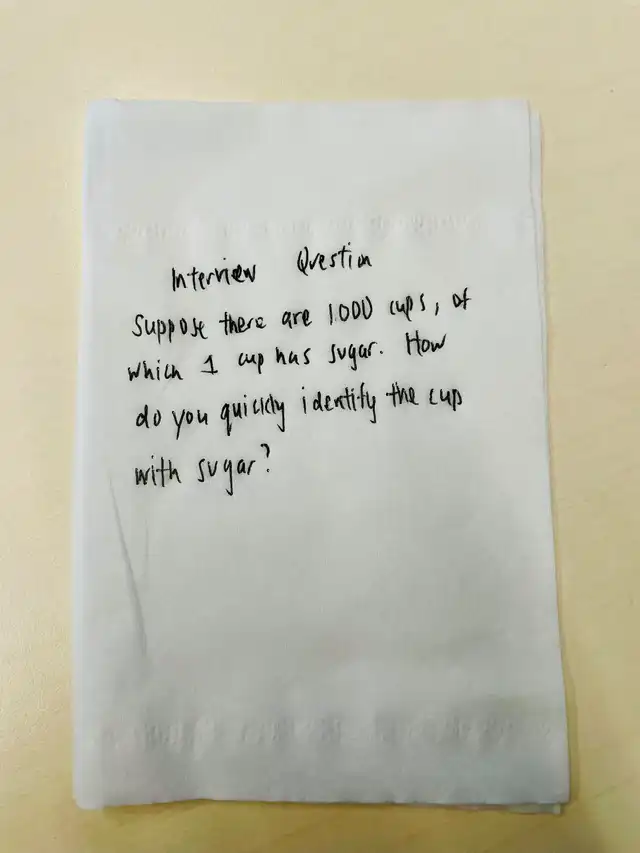 Interview Question
Suppose there are 1000 cups, of
which 1 cup has sugar. How
do you quickly identify the cup
with sugar?